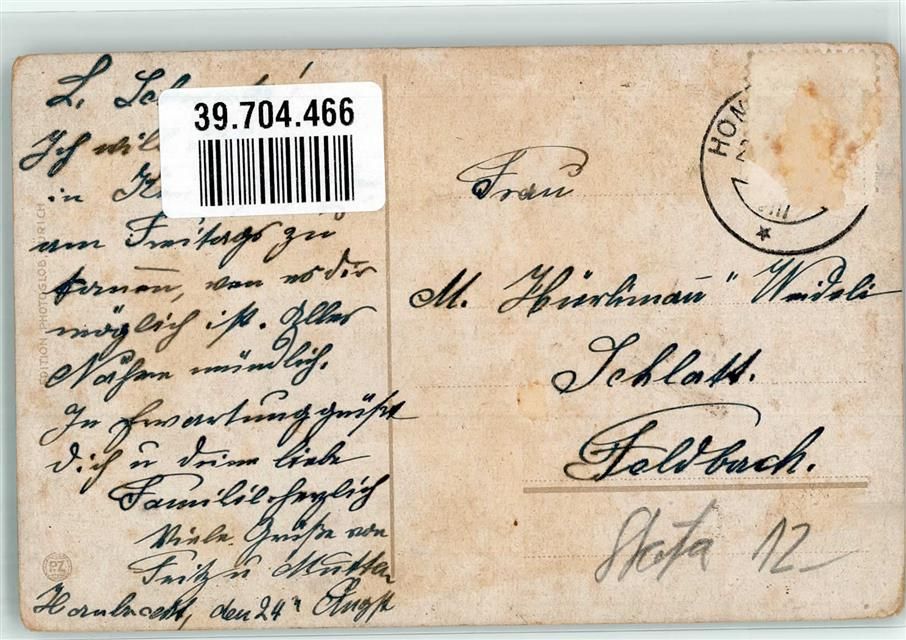 39.704.466
L.
Ich
in
am Freitags zu
möglich ist. Alles
Nähre mündlich.
In Erwartung grüßt
dich u deine liebe
Familie herzlich
Viele Grüße von
Fritz u Mutter
den 24ⁿ Augst
EDITION PHOTOGLOB ZÜRICH
PZ
HOM
Frau
M. Hürlimañ" Weideli
Schlatt.
Feldbach.
Stäfa 12